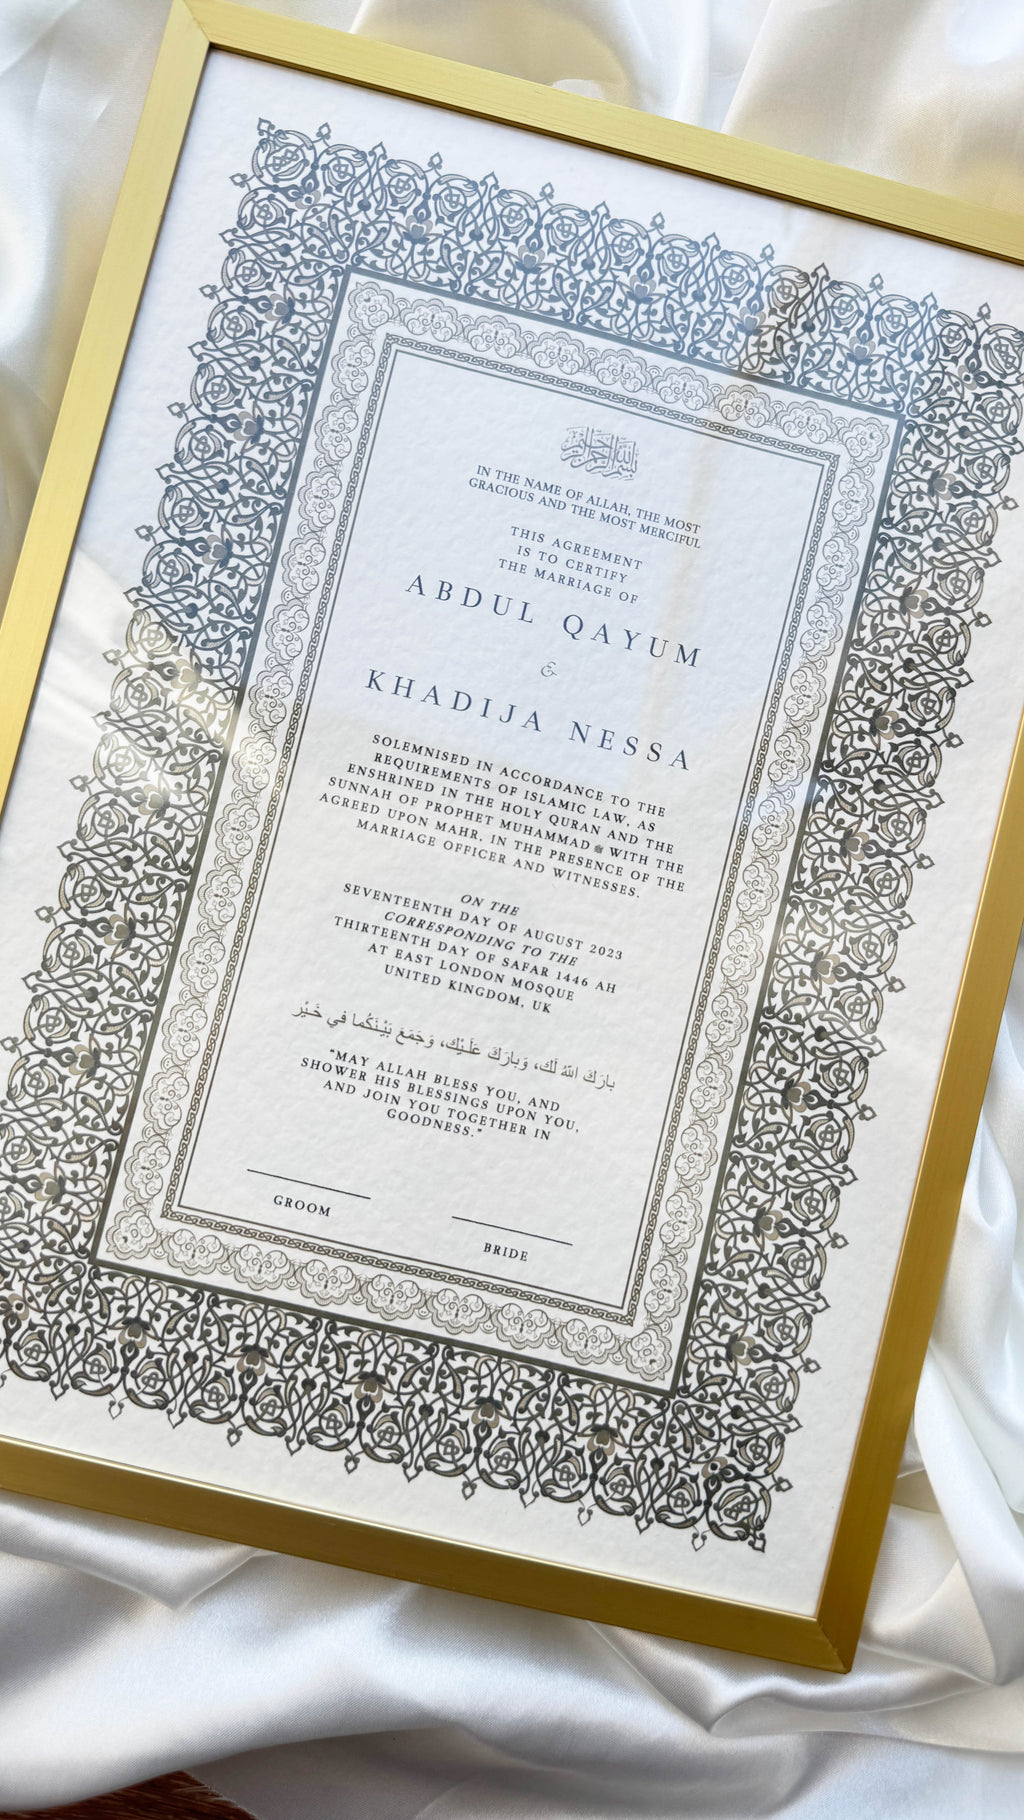 بسم الله الرحمن الرحيم
IN THE NAME OF ALLAH, THE MOST
GRACIOUS AND THE MOST MERCIFUL
THIS AGREEMENT
IS TO CERTIFY
THE MARRIAGE OF
ABDUL QAYUM
&
KHADIJA NESSA
SOLEMNISED IN ACCORDANCE TO THE
REQUIREMENTS OF ISLAMIC LAW, AS
ENSHRINED IN THE HOLY QURAN AND THE
SUNNAH OF PROPHET MUHAMMAD ﷺ WITH THE
AGREED UPON MAHR, IN THE PRESENCE OF THE
MARRIAGE OFFICER AND WITNESSES.
ON THE
SEVENTEENTH DAY OF AUGUST 2023
CORRESPONDING TO THE
THIRTEENTH DAY OF SAFAR 1446 AH
AT EAST LONDON MOSQUE
UNITED KINGDOM, UK
بارَكَ اللهُ لَك، وَبارَكَ عَلَـيْك، وَجَمَعَ بَيْنَكُما في خَـيْر
"MAY ALLAH BLESS YOU, AND
SHOWER HIS BLESSINGS UPON YOU,
AND JOIN YOU TOGETHER IN
GOODNESS."
GROOM
BRIDE